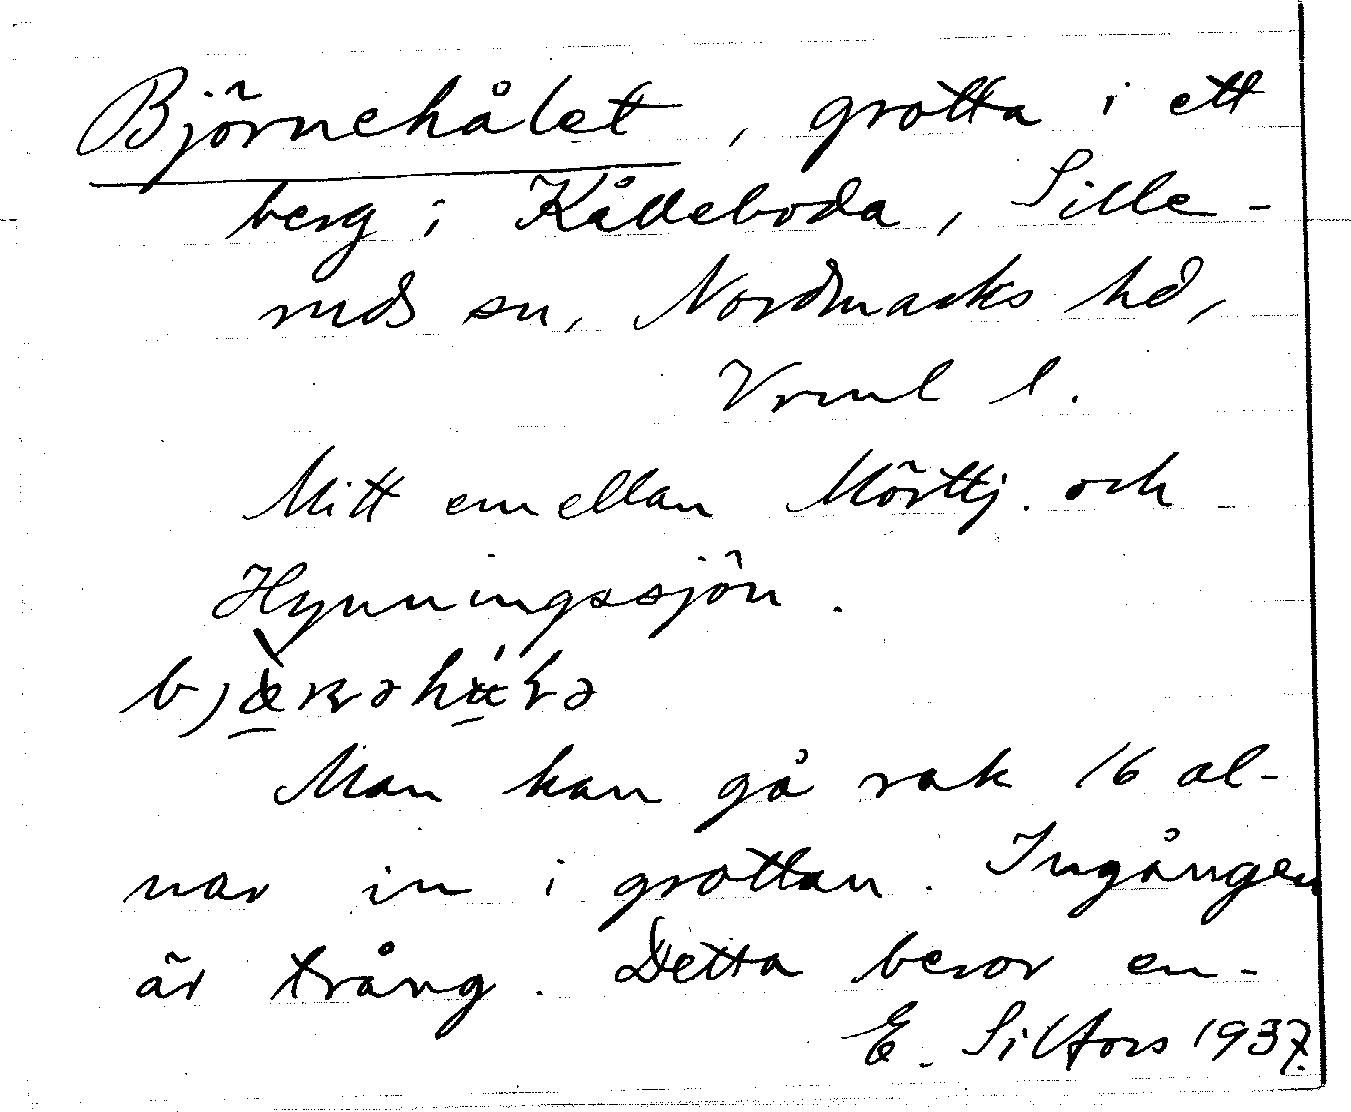 Björnehålet, grotta i ett
berg i Kålleboda, Sille-
ruds sn, Nordmarks hd,
Vrml l.
Mitt emellan Mörttj. och
Hynningssjön.
Man kan gå rak 16 al-
nar in i grottan. Ingången
är trång. Detta beror en-
E. Silfors 1937.